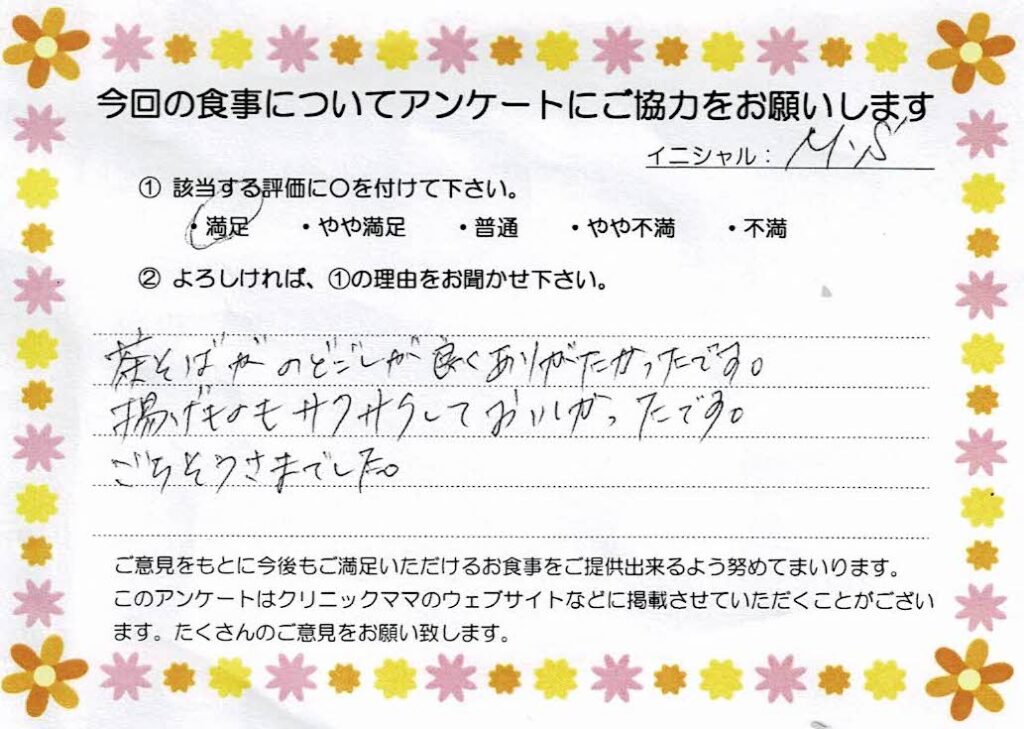 今回の食事についてアンケートにご協力をお願いします
イニシャル： M・S
① 該当する評価に○を付けて下さい。
・満足 ・やや満足 ・普通 ・やや不満 ・不満
② よろしければ、①の理由をお聞かせ下さい。
茶そばがのどごしが良くありがたかったです。
揚げものもサクサクしておいしかったです。
ごちそうさまでした。
ご意見をもとに今後もご満足いただけるお食事をご提供出来るよう努めてまいります。
このアンケートはクリニックママのウェブサイトなどに掲載させていただくことがござい
ます。たくさんのご意見をお願い致します。